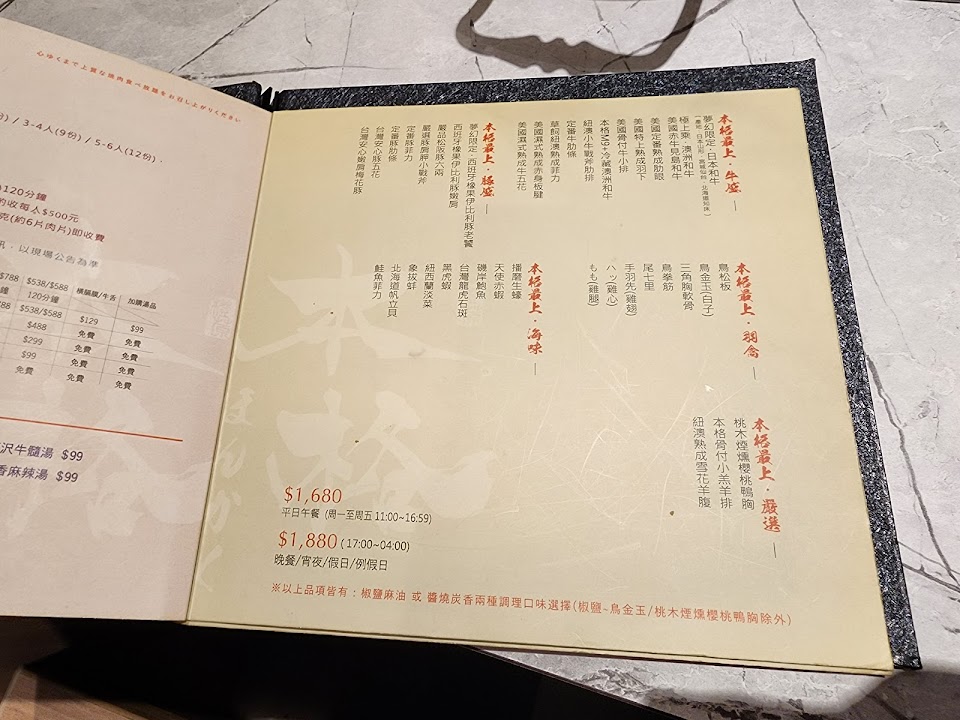 心ゆくまで上質な燒肉食べ放題をお召し上がりください
/ 3-4人(9份) / 5-6人(12份)．
120分鐘
的收每人$500元
克(約6片肉片)即收費
以現場公告為準
$788 $538/$588 橫膈膜/牛舌 加購湯品
120分鐘
$538/$588 $129 $99
$488 免費 免費
$299 免費 免費
$99 免費 免費
免費 免費 免費
沢牛髓湯 $99
香麻辣湯 $99
本格最上・牛盛
夢幻限定・日本和牛
極上乘・澳洲和牛
美國赤牛見島和牛
美國定番熟成肋眼
美國特上熟成羽下
美國骨付牛小排
本格M9+冷藏澳洲和牛
紐澳小牛戰斧肋排
定番牛肋條
草飼紐澳熟成菲力
美國濕式熟成赤身板腱
美國濕式熟成牛五花
本格最上・豚盛
夢幻限定・西班牙橡果伊比利豚老饕
西班牙橡果伊比利豚嫩肩
嚴品松阪豚六兩
嚴選豚肩胛小戰斧
定番豚菲力
定番豚肋條
台灣安心豚五花
台灣安心嫩肩梅花豚
本格最上・羽禽
鳥松板
鳥金玉(白子)
三角胸軟骨
鳥拳筋
尾七里
手羽先(雞翅)
ハツ(雞心)
もも(雞腿)
本格最上・海味
播磨生蠔
天使赤蝦
磯岸鮑魚
台灣龍虎石斑
黑虎蝦
紐西蘭淡菜
象拔蚌
北海道帆立貝
鮭魚菲力
本格最上・嚴選
桃木煙燻櫻桃鴨胸
本格骨付小羔羊排
紐澳熟成雪花羊腹
$1,680
平日午餐 (周一至周五 11:00~16:59)
$1,880 (17:00~04:00)
晚餐/宵夜/假日/例假日
※以上品項皆有：椒鹽麻油 或 醬燒炭香兩種調理口味選擇(椒鹽~鳥金玉/桃木煙燻櫻桃鴨胸除外)